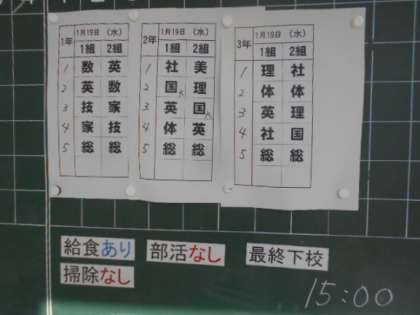 1年 1月19日 (水)
1組 2組
1 数 英
2 英 数
3 技 家
4 家 技
5 総 総
2年 1月19日 (水)
1組 2組
1 社 美
2 国 理
3 英 国
4 体 英
5 総 総
3年 1月19日 (水)
1組 2組
1 理 社
2 体 体
3 英 理
4 社 国
5 総 総
給食あり 部活なし 最終下校
掃除なし
15:00